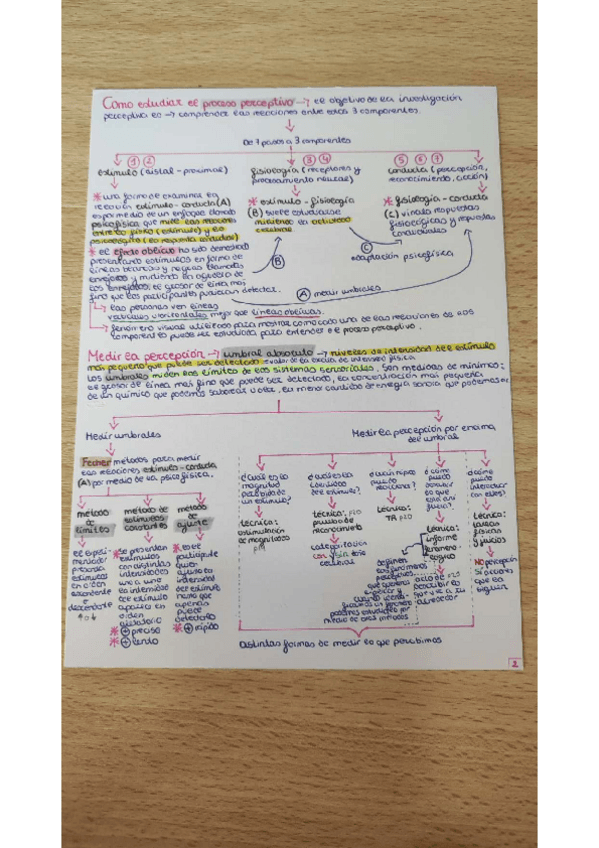 Como estudiar el proceso perceptivo → el objetivo de la investigación
perceptiva es → comprender las relaciones entre estos 3 componentes.
De 7 pasos a 3 componentes
① ②
estímulo (distal - proximal)
* una forma de examinar la
relación estímulo - conducta (A)
es por medio de un enfoque llamado
psicofísica que mide las relaciones
entre lo físico (estímulo) y lo
psicológico (la respuesta conductual)
* el efecto oblicuo ha sido demostrado
presentando estímulos en forma de
líneas blancas y negras llamadas
enrejados y midiendo la agudeza de
los enrejados, el grosor de línea más
fino que los participantes puedan detectar.
↳ las personas ven líneas
verticales u horizontales mejor que líneas oblicuas.
↳ fenómeno visual utilizado para mostrar como cada una de las relaciones de los
componentes puede ser estudiada para entender el proceso perceptivo.
③ ④
fisiología (receptores y
procesamiento neural)
* estímulo - fisiología
(B) suele estudiarse
midiendo la actividad
cerebral
⑤ ⑥ ⑦
conducta (percepción,
reconocimiento, acción)
* fisiología - conducta
(C) vincula respuestas
fisiológicas y respuestas
conductuales
B
C
adaptación psicofísica
A medir umbrales
Medir la percepción → umbral absoluto → niveles de intensidad del estímulo
más pequeño que puede ser detectado
Los umbrales miden los límites de los sistemas sensoriales. Son medidas de mínimo:
el grosor de línea más fino que puede ser detectado, la concentración más pequeña
de un químico que podamos saborear u oler, la menor cantidad de energía sonora que podemos oír
Medir umbrales
Fechner métodos para medir
las relaciones estímulo - conducta
(A) por medio de la psicofísica.
método
de
límites
el experi-
mentador
presenta
estímulos
en orden
ascendente
o
descendente
↑ o ↓
método de
estímulos
constantes
* se presentan
estímulos
con distintas
intensidades
una a una
orden
aleatorio
* ⊕ preciso
* ⊕ lento
método
de
ajuste
* es el
participante
quien
ajusta la
intensidad
del estímulo
hasta que
apenas
puede
detectarlo
* ⊕ rápido
Medir la percepción por encima
del umbral
¿cuál es la
magnitud
percibida de
un estímulo?
técnica:
estimulación
de magnitudes
¿cuál es la
identidad
del estímulo?
técnica:
pruebas de
reconocimiento
categorización
¿cuán rápido
puedo
reaccionar?
técnica:
TR
¿cómo
puedo
describir
lo que
está ahí
fuera?
técnica:
informe
fenomeno-
lógico
¿cómo
puedo
interactuar
con ellos?
técnica:
tareas
físicas
y juicios
NO percepción
sí acciones
que la
siguen
Distintas formas de medir lo que percibimos
2